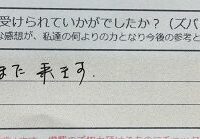 受けられていかがでしたか？（ズバ
な感想が、私達の何よりの力となり今後の参考と
また来ます.